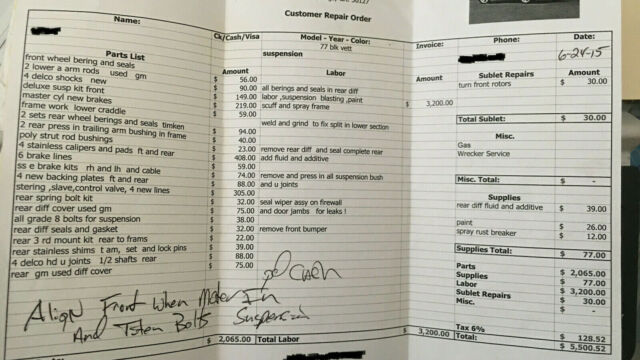 Customer Repair Order
Name: Ck/Cash/Visa Model - Year - Color: Invoice: Phone: Date:
77 blk vett
suspension
6-24-15
Parts List Amount Labor Amount Sublet Repairs Amount
front wheel bering and seals $ 56.00
turn front rotors $ 30.00
2 lower a arm rods used gm $ 90.00 all berings and seals in rear diff
4 delco shocks new $ 149.00 labor ,suspension blasting ,paint $ 3,200.00
deluxe susp kit front $ 219.00 scuff and spray frame
master cyl new brakes $ 59.00
frame work lower craddle weld and grind to fix split in lower section
Total Sublet: $ 30.00
2 sets rear wheel berings and seals timken $ 94.00
Misc.
2 rear press in trailing arm bushing in frame $ 40.00
Gas
poly strut rod bushings $ 23.00 remove rear diff and seal complete rear
Wrecker Service
4 stainless calipers and pads ft and rear $ 408.00 add fluid and additive
6 brake lines $ 59.00
ss e brake kits rh and lh and cable $ 74.00 remove and press in all suspension bush
Misc. Total: $ -
4 new backing plates ft and rear $ 88.00 and u joints
stering ,slave,control valve, 4 new lines $ 305.00
Supplies
rear spring bolt kit $ 32.00 seal wiper assy on firewall
rear diff fluid and additive $ 39.00
rear diff cover used gm $ 75.00 and door jambs for leaks !
all grade 8 bolts for suspension $ 38.00
paint $ 26.00
rear diff seals and gasket $ 32.00 remove front bumper
spray rust breaker $ 12.00
rear 3 rd mount kit rear to frame $ 22.00
Supplies Total: $ 77.00
rear stainless shims t am, set and lock pins $ 39.00
4 delco hd u joints 1/2 shafts rear $ 88.00
rear gm used diff cover $ 75.00
Parts $ 2,065.00
Supplies $ 77.00
Labor $ 3,200.00
Sublet Repairs $ 30.00
Misc. $ -
pd Cash
Align Front When Motor In
And Suspension
Tax 6% $ 128.52
$ 2,065.00 Total Labor $ 3,200.00 Total: $ 5,500.52